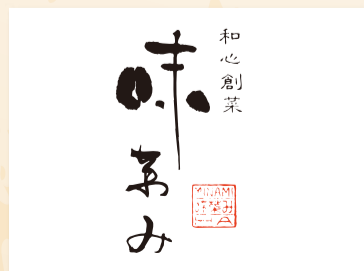 和心創菜
味菜み
MINAMI